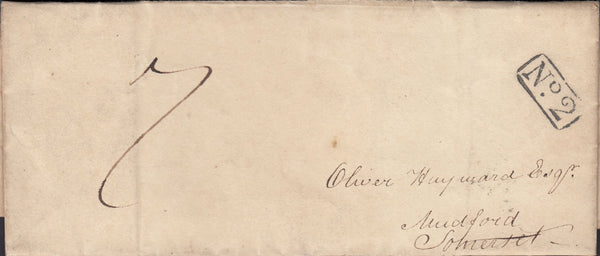 7
No. 2
Oliver Hayward Esqr.
Mudford
Somerset